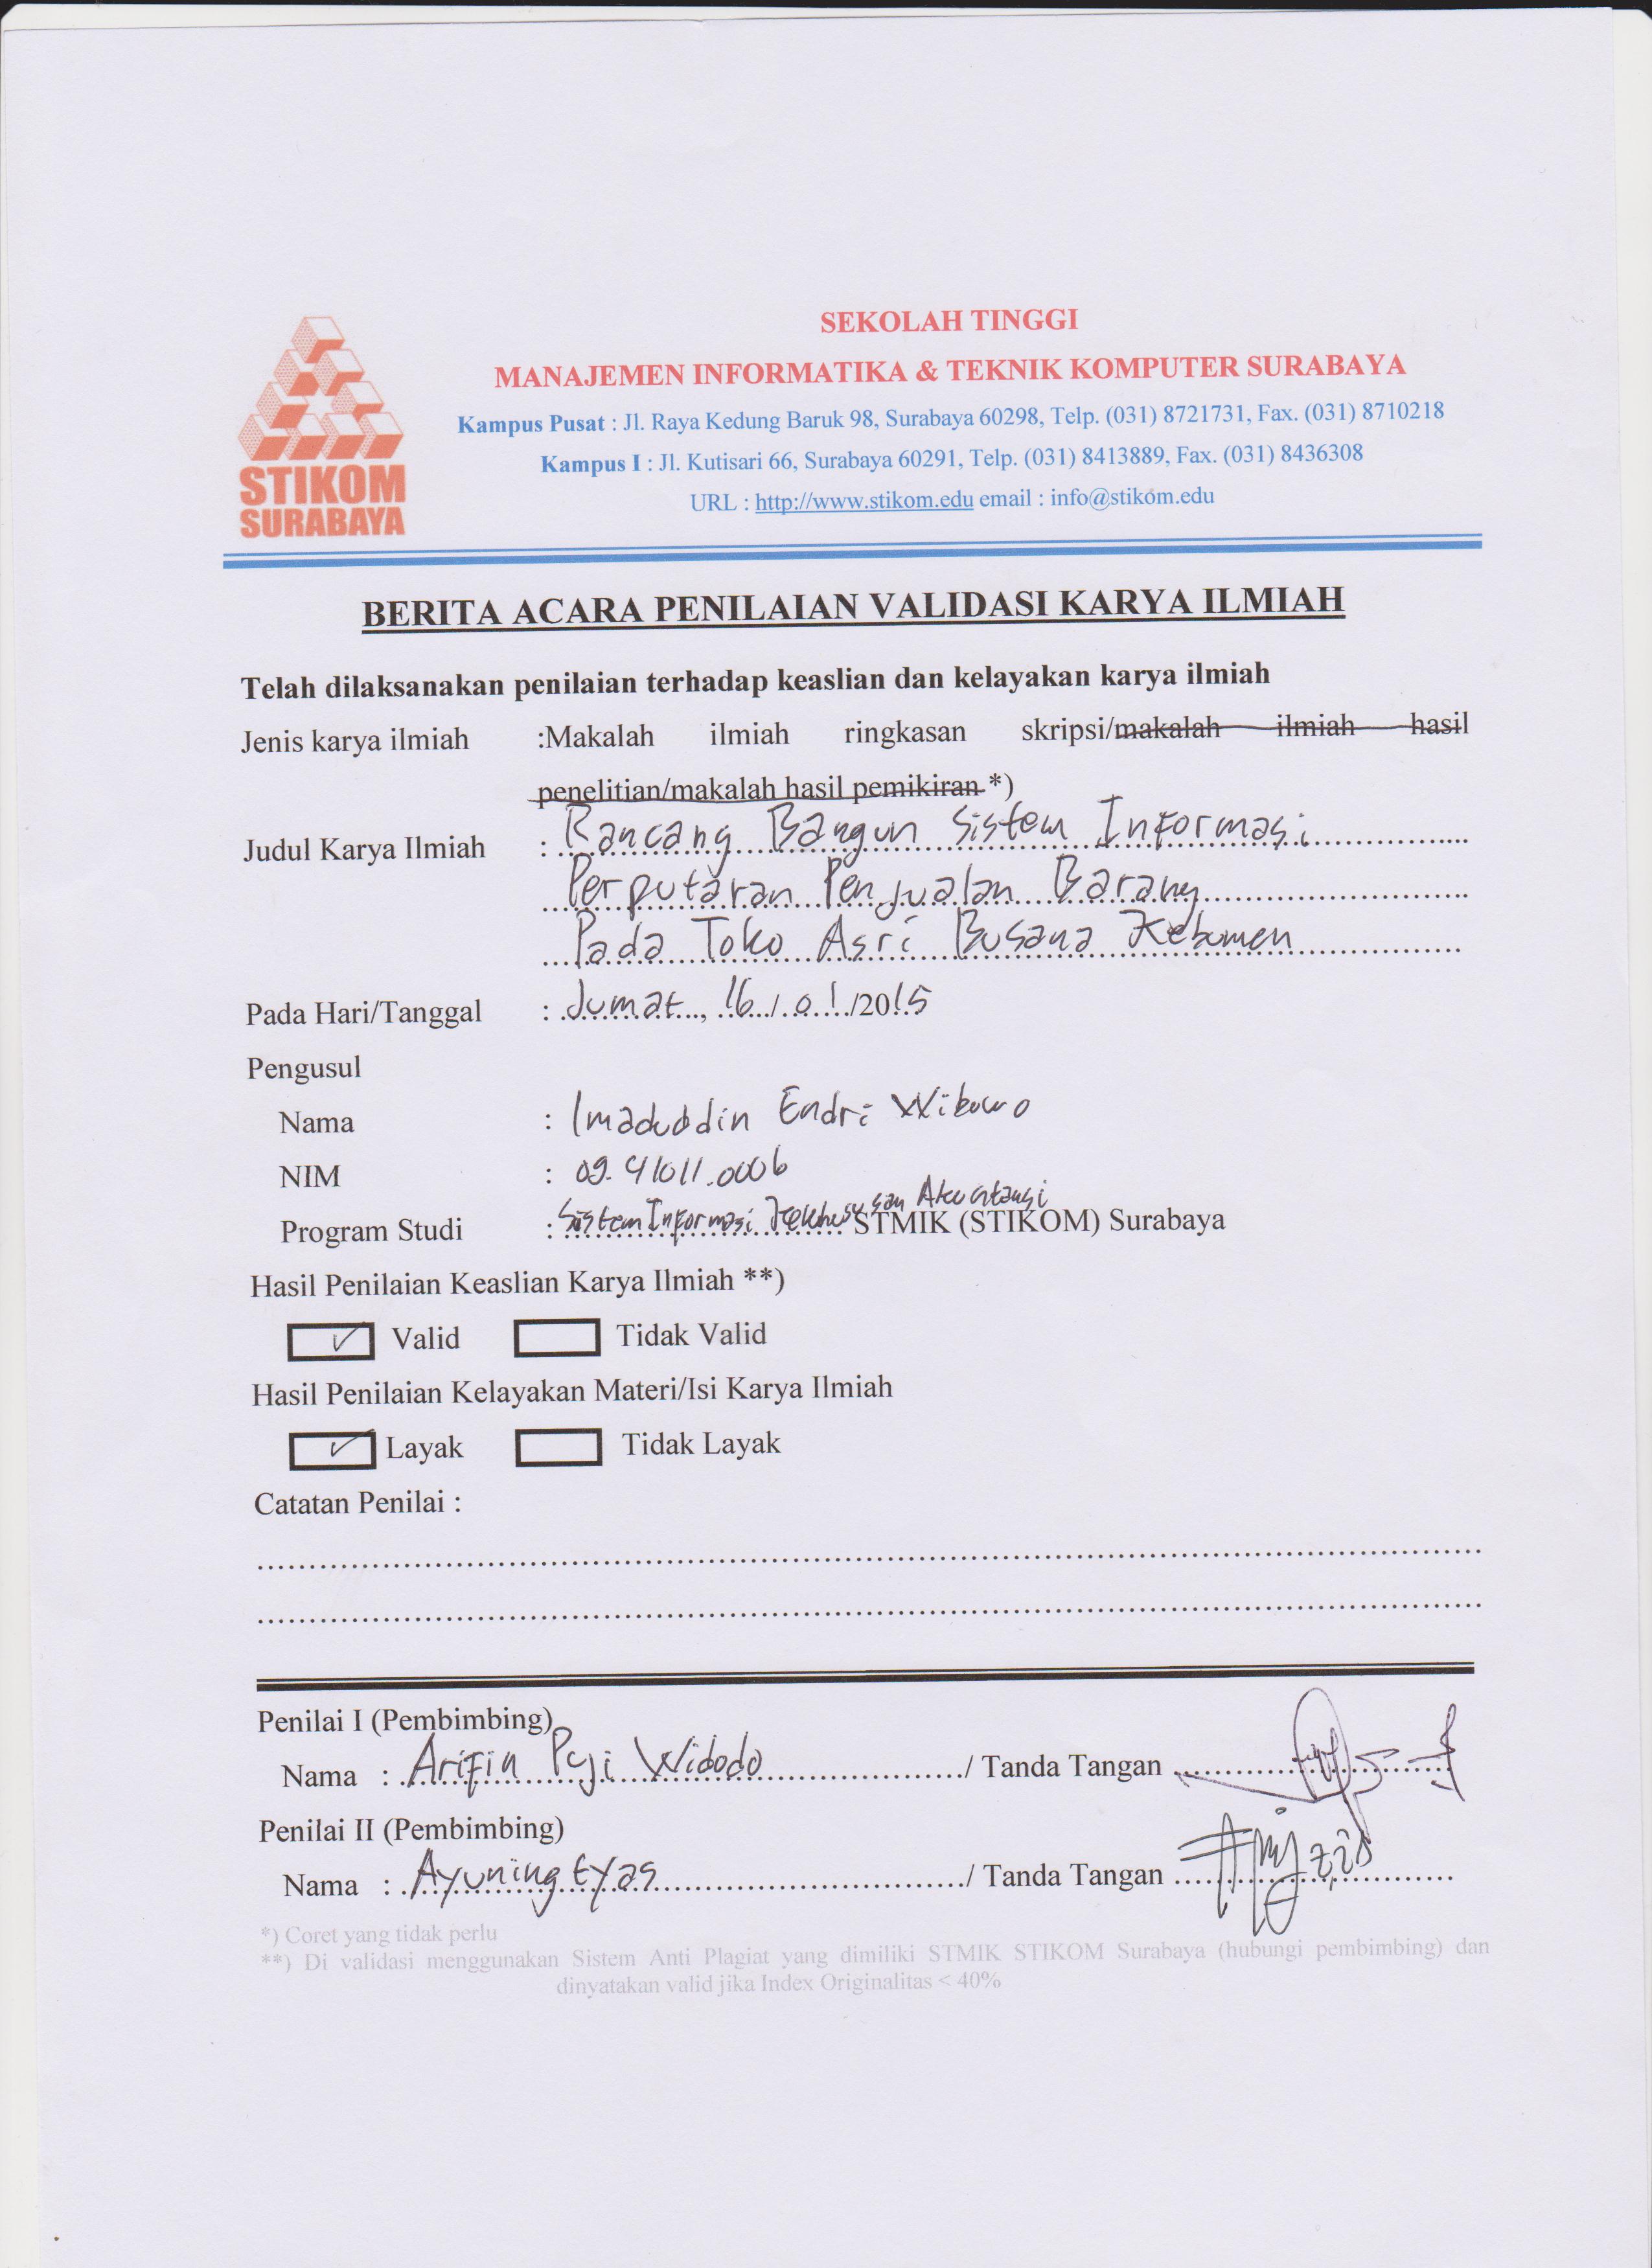 STIKOM
SURABAYA
SEKOLAH TINGGI
MANAJEMEN INFORMATIKA & TEKNIK KOMPUTER SURABAYA
Kampus Pusat : Jl. Raya Kedung Baruk 98, Surabaya 60298, Telp. (031) 8721731, Fax. (031) 8710218
Kampus I : Jl. Kutisari 66, Surabaya 60291, Telp. (031) 8413889, Fax. (031) 8436308
URL : http://www.stikom.edu email : info@stikom.edu
BERITA ACARA PENILAIAN VALIDASI KARYA ILMIAH
Telah dilaksanakan penilaian terhadap keaslian dan kelayakan karya ilmiah
Jenis karya ilmiah :Makalah ilmiah ringkasan skripsi/makalah ilmiah hasil
penelitian/makalah hasil pemikiran *)
Judul Karya Ilmiah : Rancang Bangun Sistem Informasi
Perputaran Penjualan Barang
Pada Toko Asri Busana Kebumen
Pada Hari/Tanggal : Jumat, 16/01/2015
Pengusul
Nama : Imaduddin Endri Wibowo
NIM : 09.41011.0006
Program Studi : Sistem Informasi Kekhususan Akuntansi STMIK (STIKOM) Surabaya
Hasil Penilaian Keaslian Karya Ilmiah **)
✓ Valid Tidak Valid
Hasil Penilaian Kelayakan Materi/Isi Karya Ilmiah
✓ Layak Tidak Layak
Catatan Penilai :
Penilai I (Pembimbing)
Nama : Arifin Puji Widodo / Tanda Tangan
Penilai II (Pembimbing)
Nama : Ayuningtyas / Tanda Tangan
*) Coret yang tidak perlu
**) Di validasi menggunakan Sistem Anti Plagiat yang dimiliki STMIK STIKOM Surabaya (hubungi pembimbing) dan
dinyatakan valid jika Index Originalitas < 40%